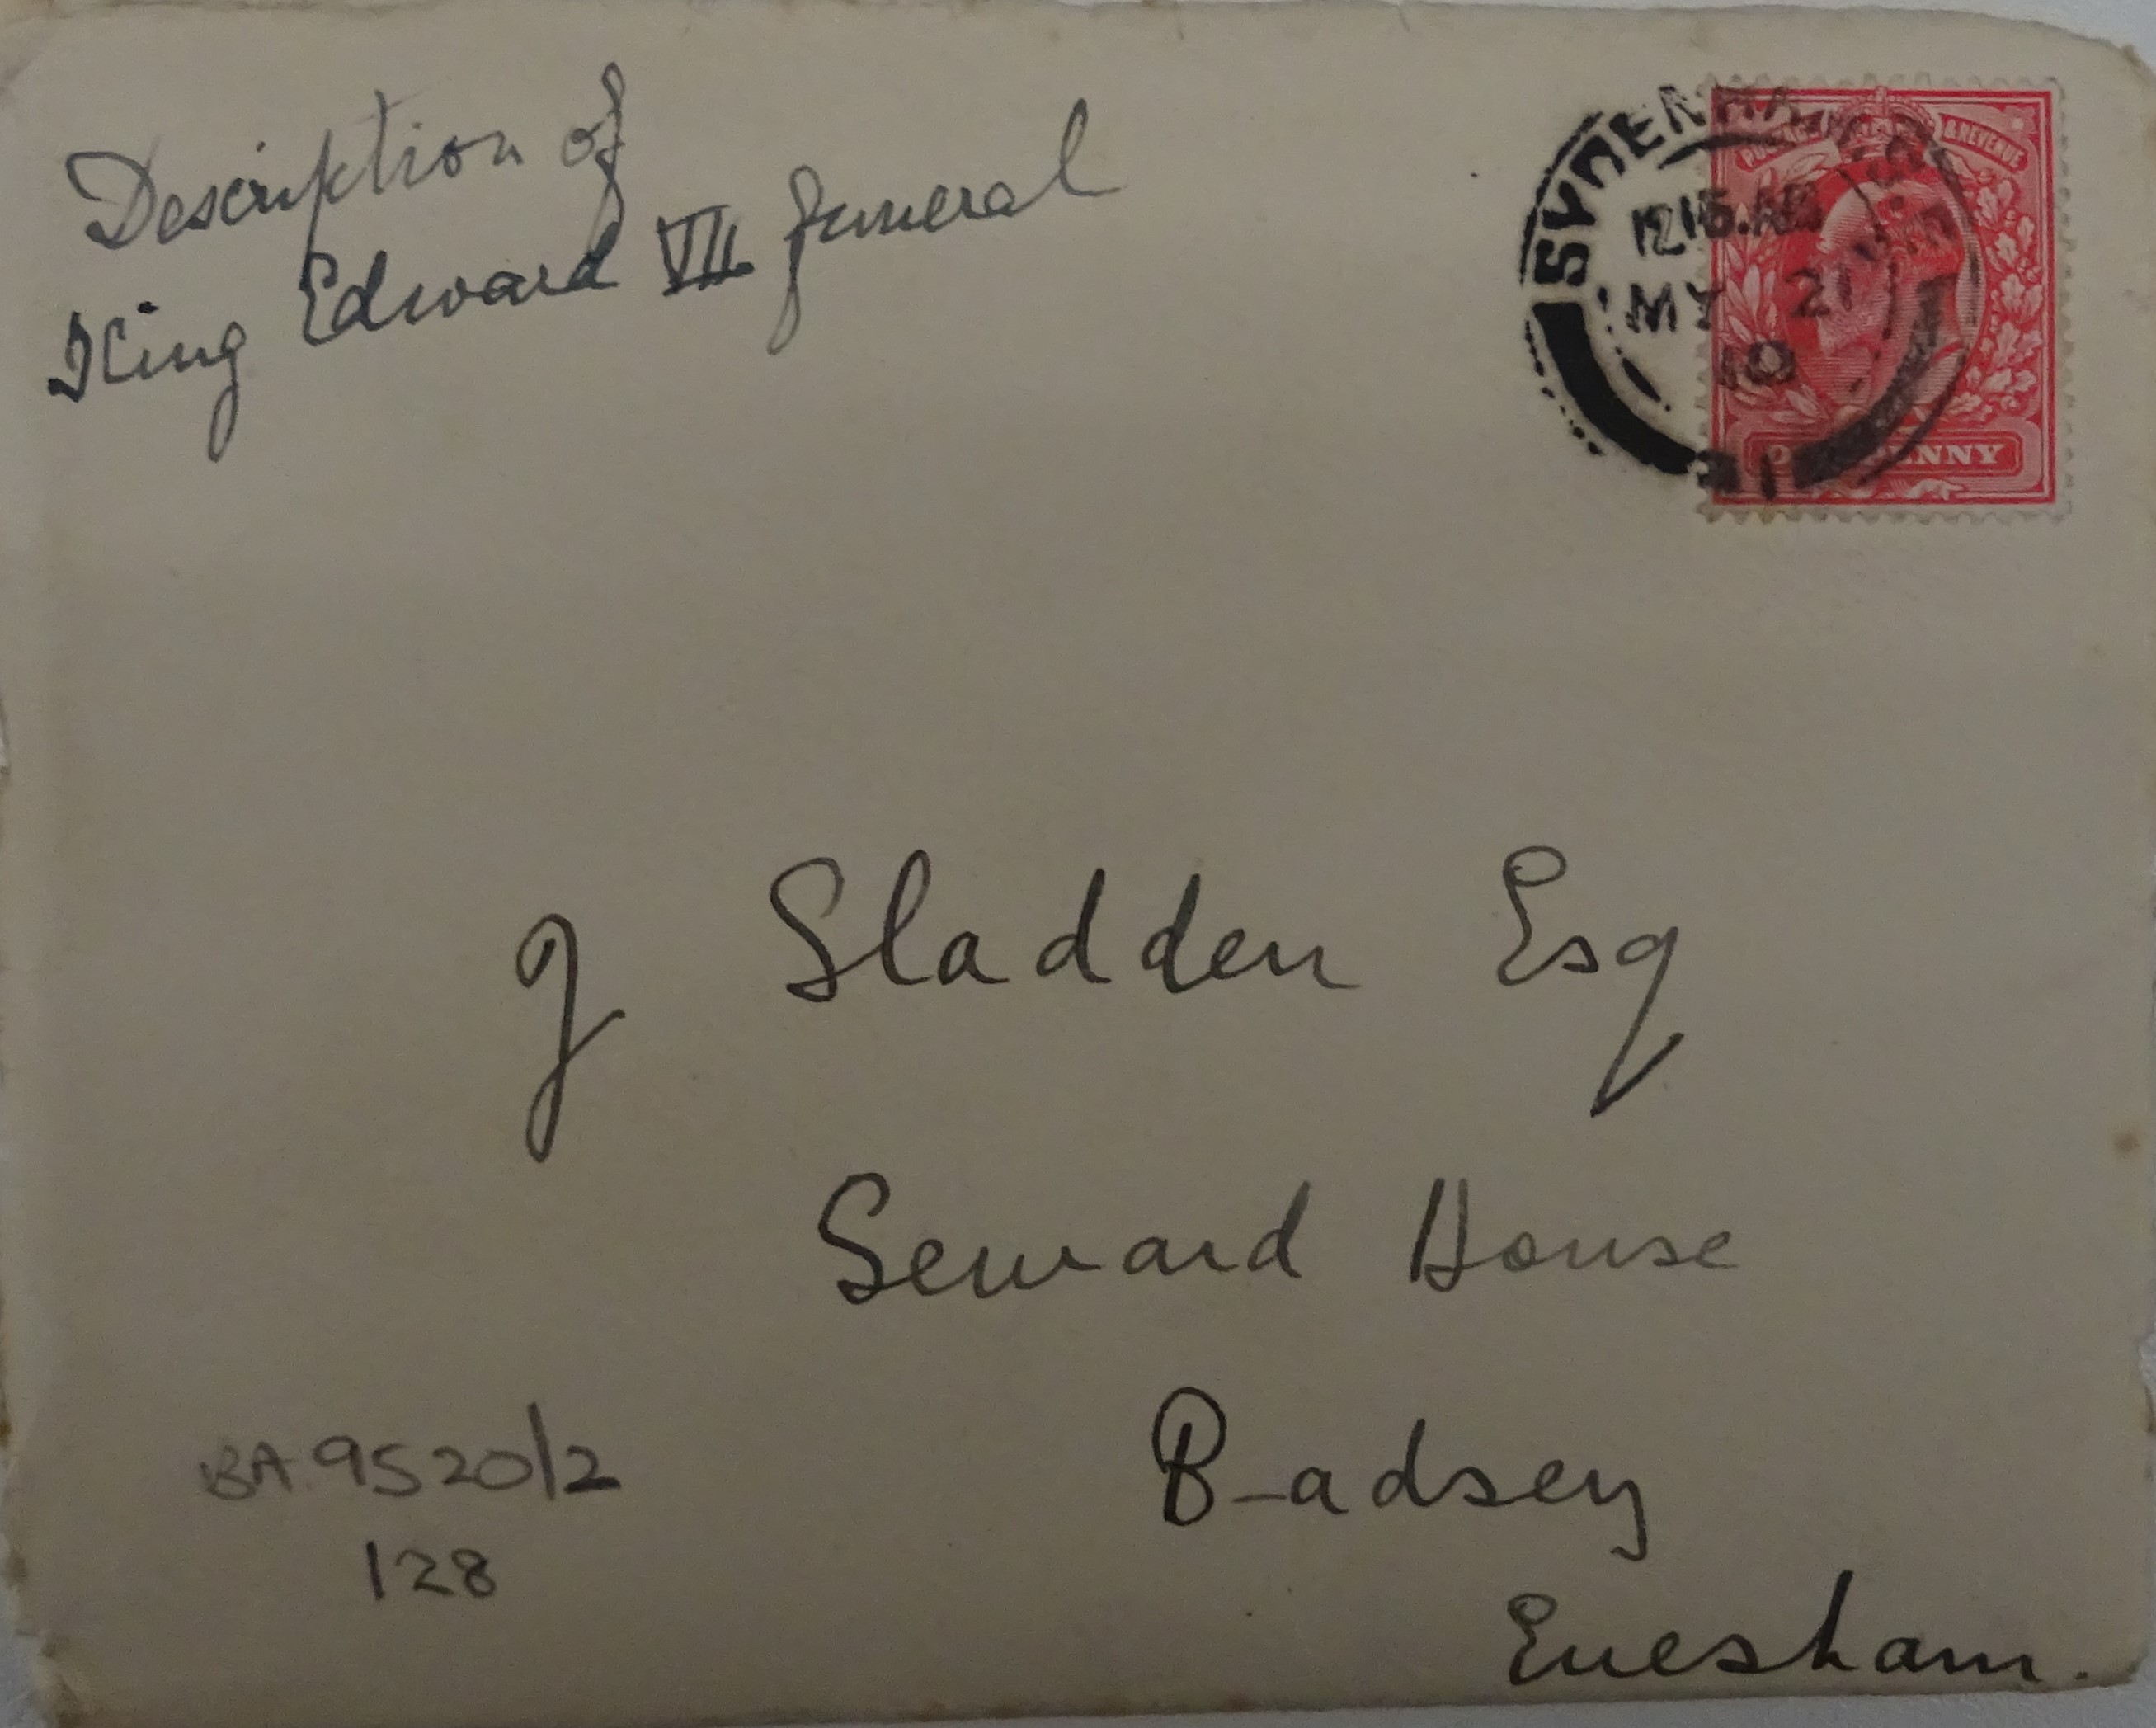 Description of
King Edward VII funeral
SYDENHAM
12 15.AM
MY 21
10
POSTAGE & REVENUE
ONE PENNY
J Sladden Esq
Seward House
Badsey
Evesham.
BA 9520/2
128